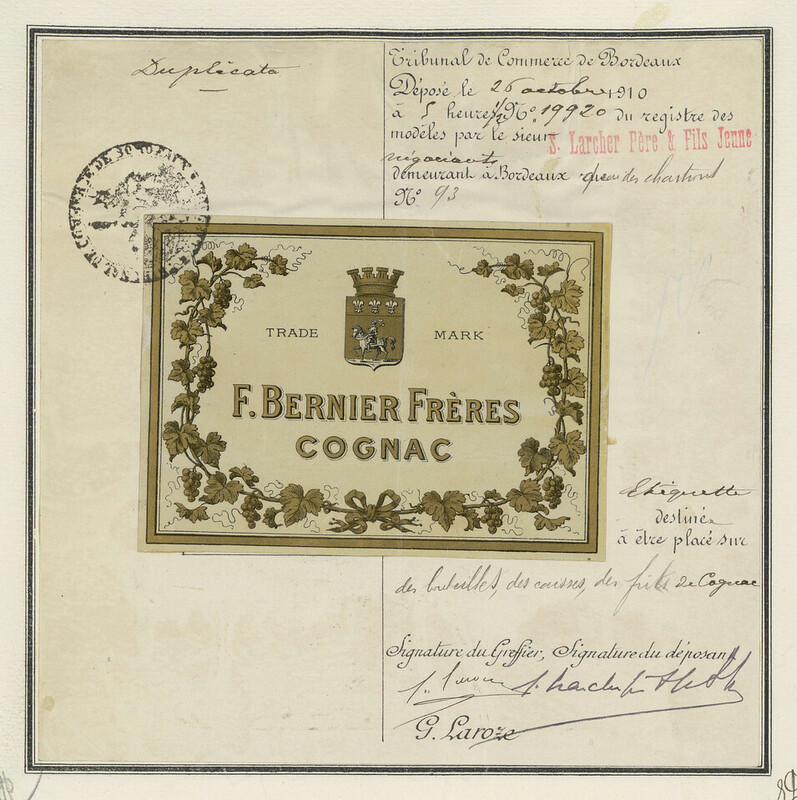 Duplicata
Tribunal de Commerce de Bordeaux
Déposé le 26 octobre 1910
à 5 heures ½ No. 19920 du registre des
modèles par le sieur S. Larcher Père & Fils Jeune
négociants
demeurant à Bordeaux quai des chartrons
No 93
TRADE MARK
F. BERNIER FRÈRES
COGNAC
Etiquette
destinée
à être placé sur
des bouteilles, des caisses, des fûts de Cognac
Signature du Greffier, Signature du déposant
G. Laroze